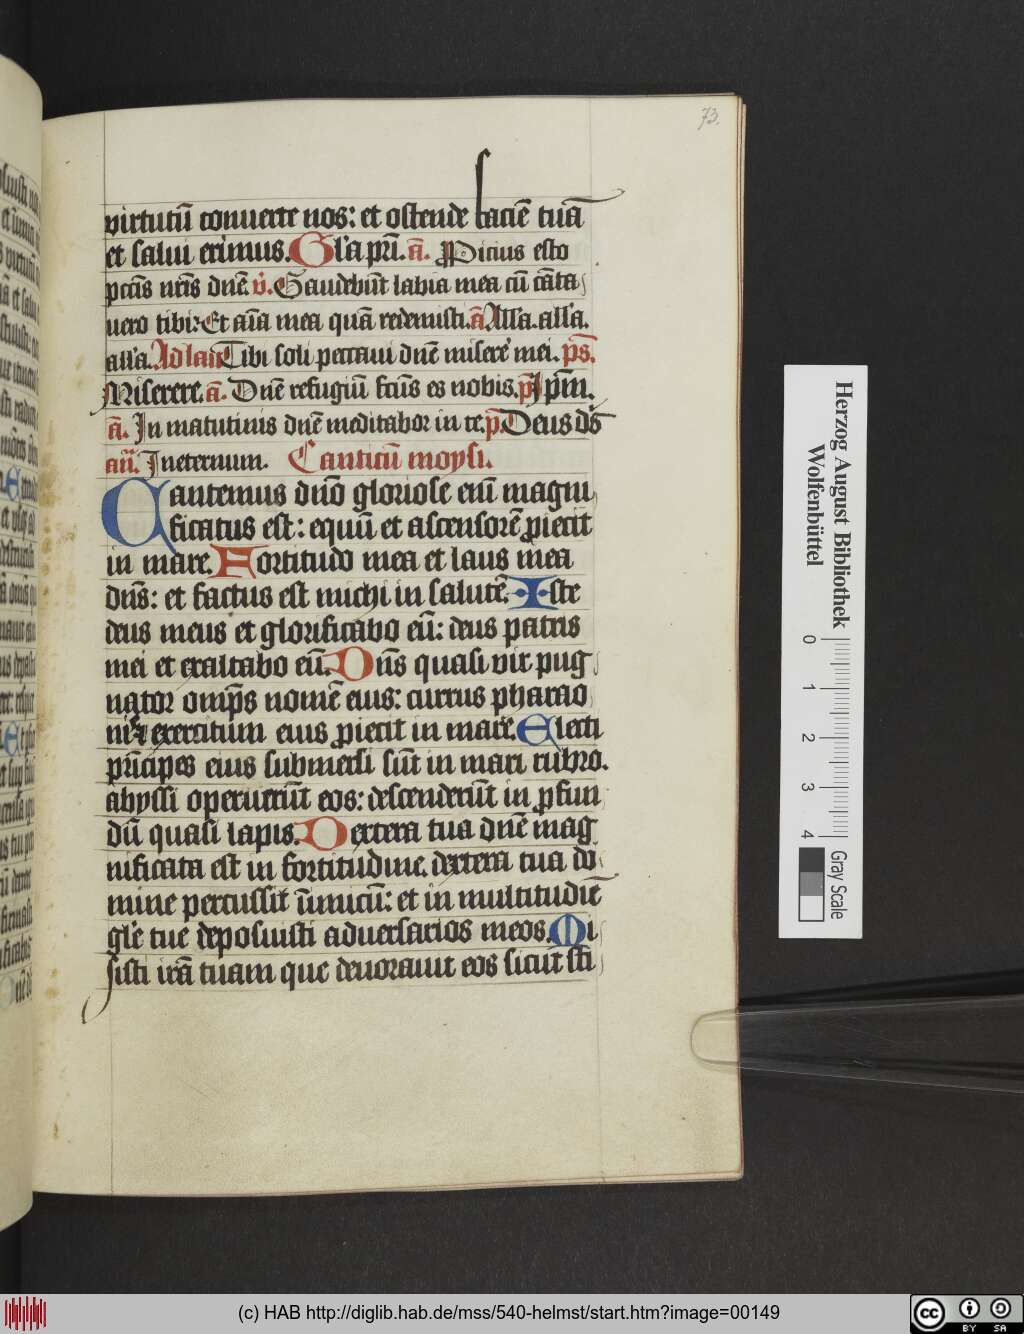 73.
virtutū conuerte nos: et ostende faciē tuā
et salui erimus. Gl'a pri. ā. Ppicius esto
pctīs nrīs dnē. v̇. Gaudebūt labia mea cū cāta
uero tibi: Et aīa mea quā redemisti. ā All'a. all'a.
all'a. Ad lau Tibi soli peccaui dnē misere' mei. ps̄.
Miserere. ā. Dnē refugiū factus es nobis. p̄ Ipm̄.
ā. In matutinis dnē meditabor in te. p̄. Deus ds̄
añ. Ineternum. Canticū moysi.
Cantemus dnō gloriose enī magni
ficatus est: equū et ascensorē piecit
in mare. Fortitudo mea et laus mea
dn̄s: et factus est michi in salutē. Iste
deus meus et glorificabo eū: deus patris
mei et exaltabo eū. Dn̄s quasi vir pug
nator omp̄s nomē eius: currus pharao
nis ⁊ exercitum eius piecit in mare. Electi
pricipes eius submersi sūt in mari rubro.
abyssi operuerūt eos: descenderūt in pfun
dū quasi lapis. Dextera tua dnē mag
nificata est in fortitudine. dextera tua do
mine percussit inimicū: et in multitudīe
gl'e tue deposuisti aduersarios meos. Mi
sisti irā tuam que deuorauit eos sicut sti
Herzog August Bibliothek
Wolfenbüttel
0 1 2 3 4
Gray Scale
(c) HAB http://diglib.hab.de/mss/540-helmst/start.htm?image=00149
cc BY SA